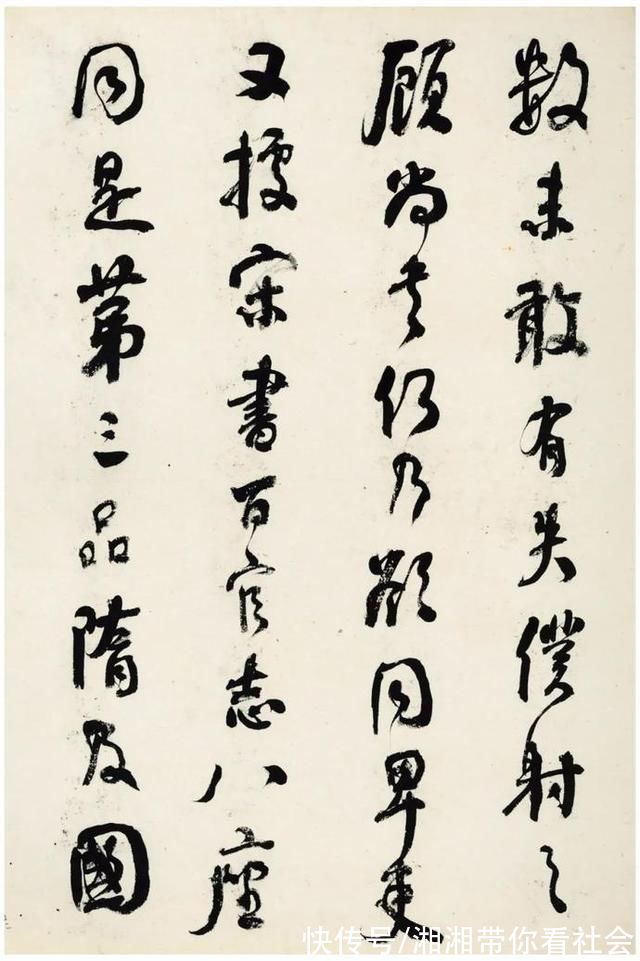 數未敢有失僕射之
顧尚書何乃欲同卑吏
又據宋書百官志八座
同是第三品隋及國
快传号/湘湘带你看社会